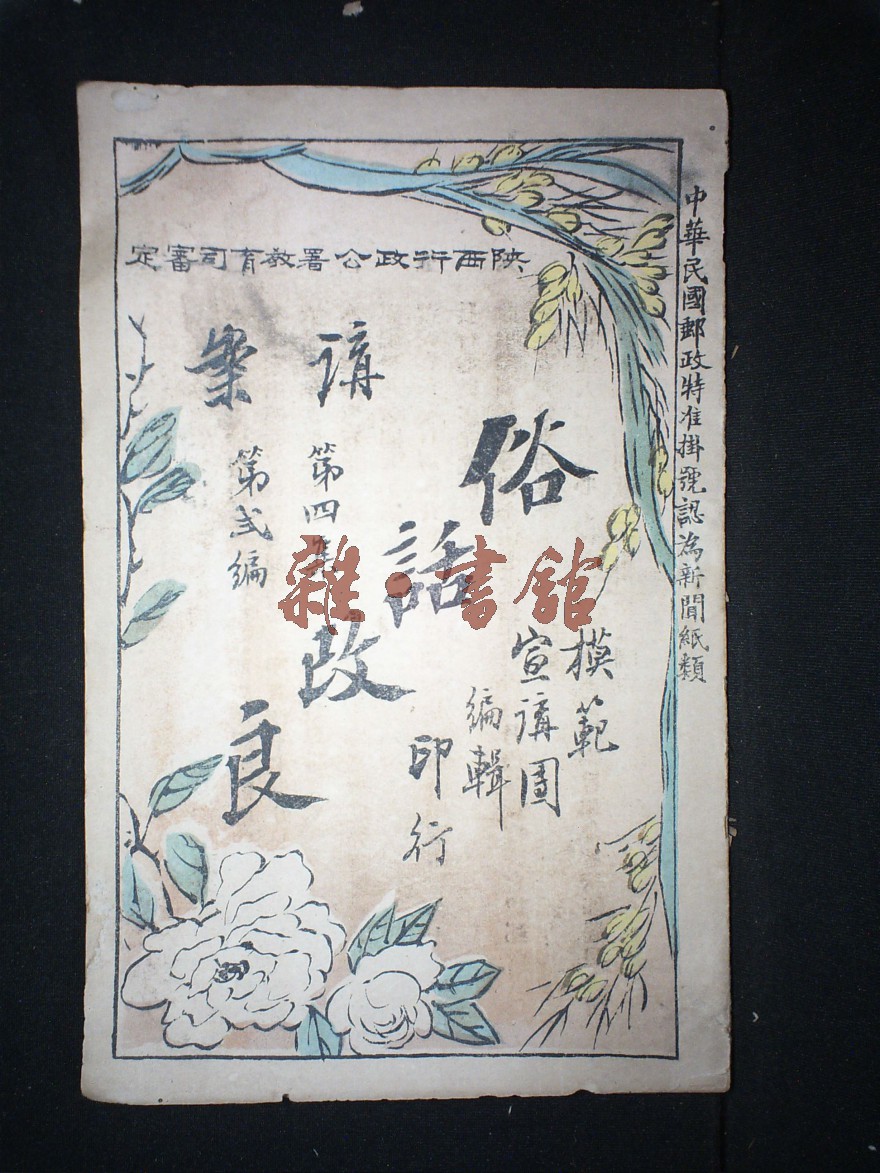 中華民國郵政特准掛號認為新聞紙類
陝西行政公署教育司審定
俗話改良
講案
第四集
第弍編
模範
宣講團
編輯
印行
雜·書館